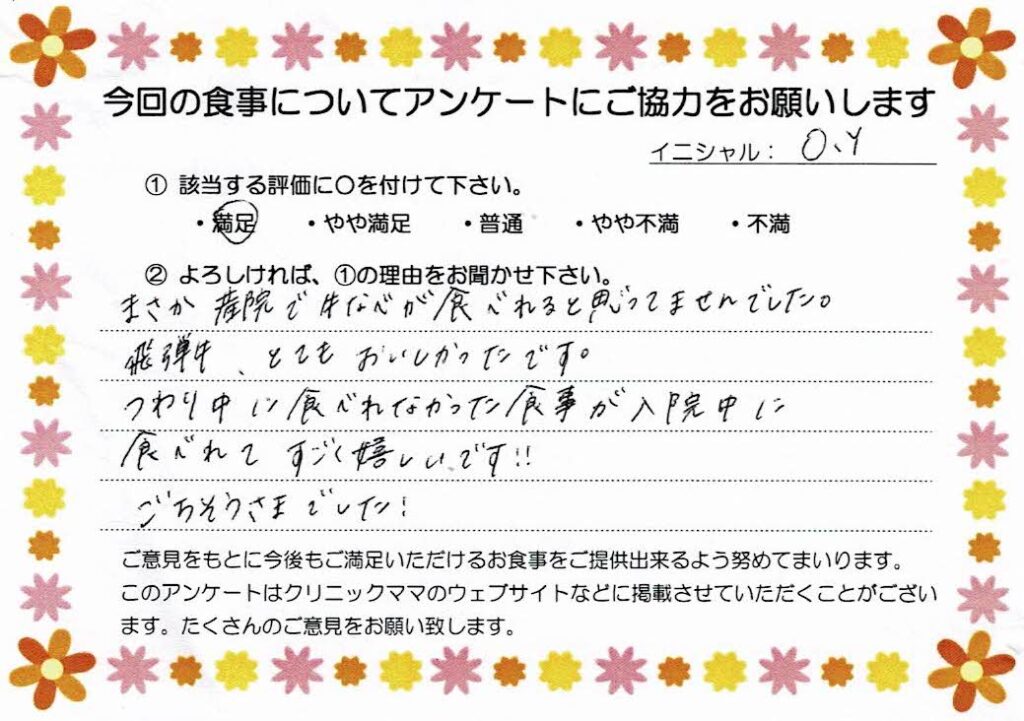 今回の食事についてアンケートにご協力をお願いします
イニシャル： O.Y
① 該当する評価に○を付けて下さい。
・満足 ・やや満足 ・普通 ・やや不満 ・不満
② よろしければ、①の理由をお聞かせ下さい。
まさか産院で牛なべが食べれると思ってませんでした。
飛弾牛、とてもおいしかったです。
つわり中に食べれなかった食事が入院中に
食べれてすごく嬉しいです!!
ごちそうさまでした!
ご意見をもとに今後もご満足いただけるお食事をご提供出来るよう努めてまいります。
このアンケートはクリニックママのウェブサイトなどに掲載させていただくことがござい
ます。たくさんのご意見をお願い致します。